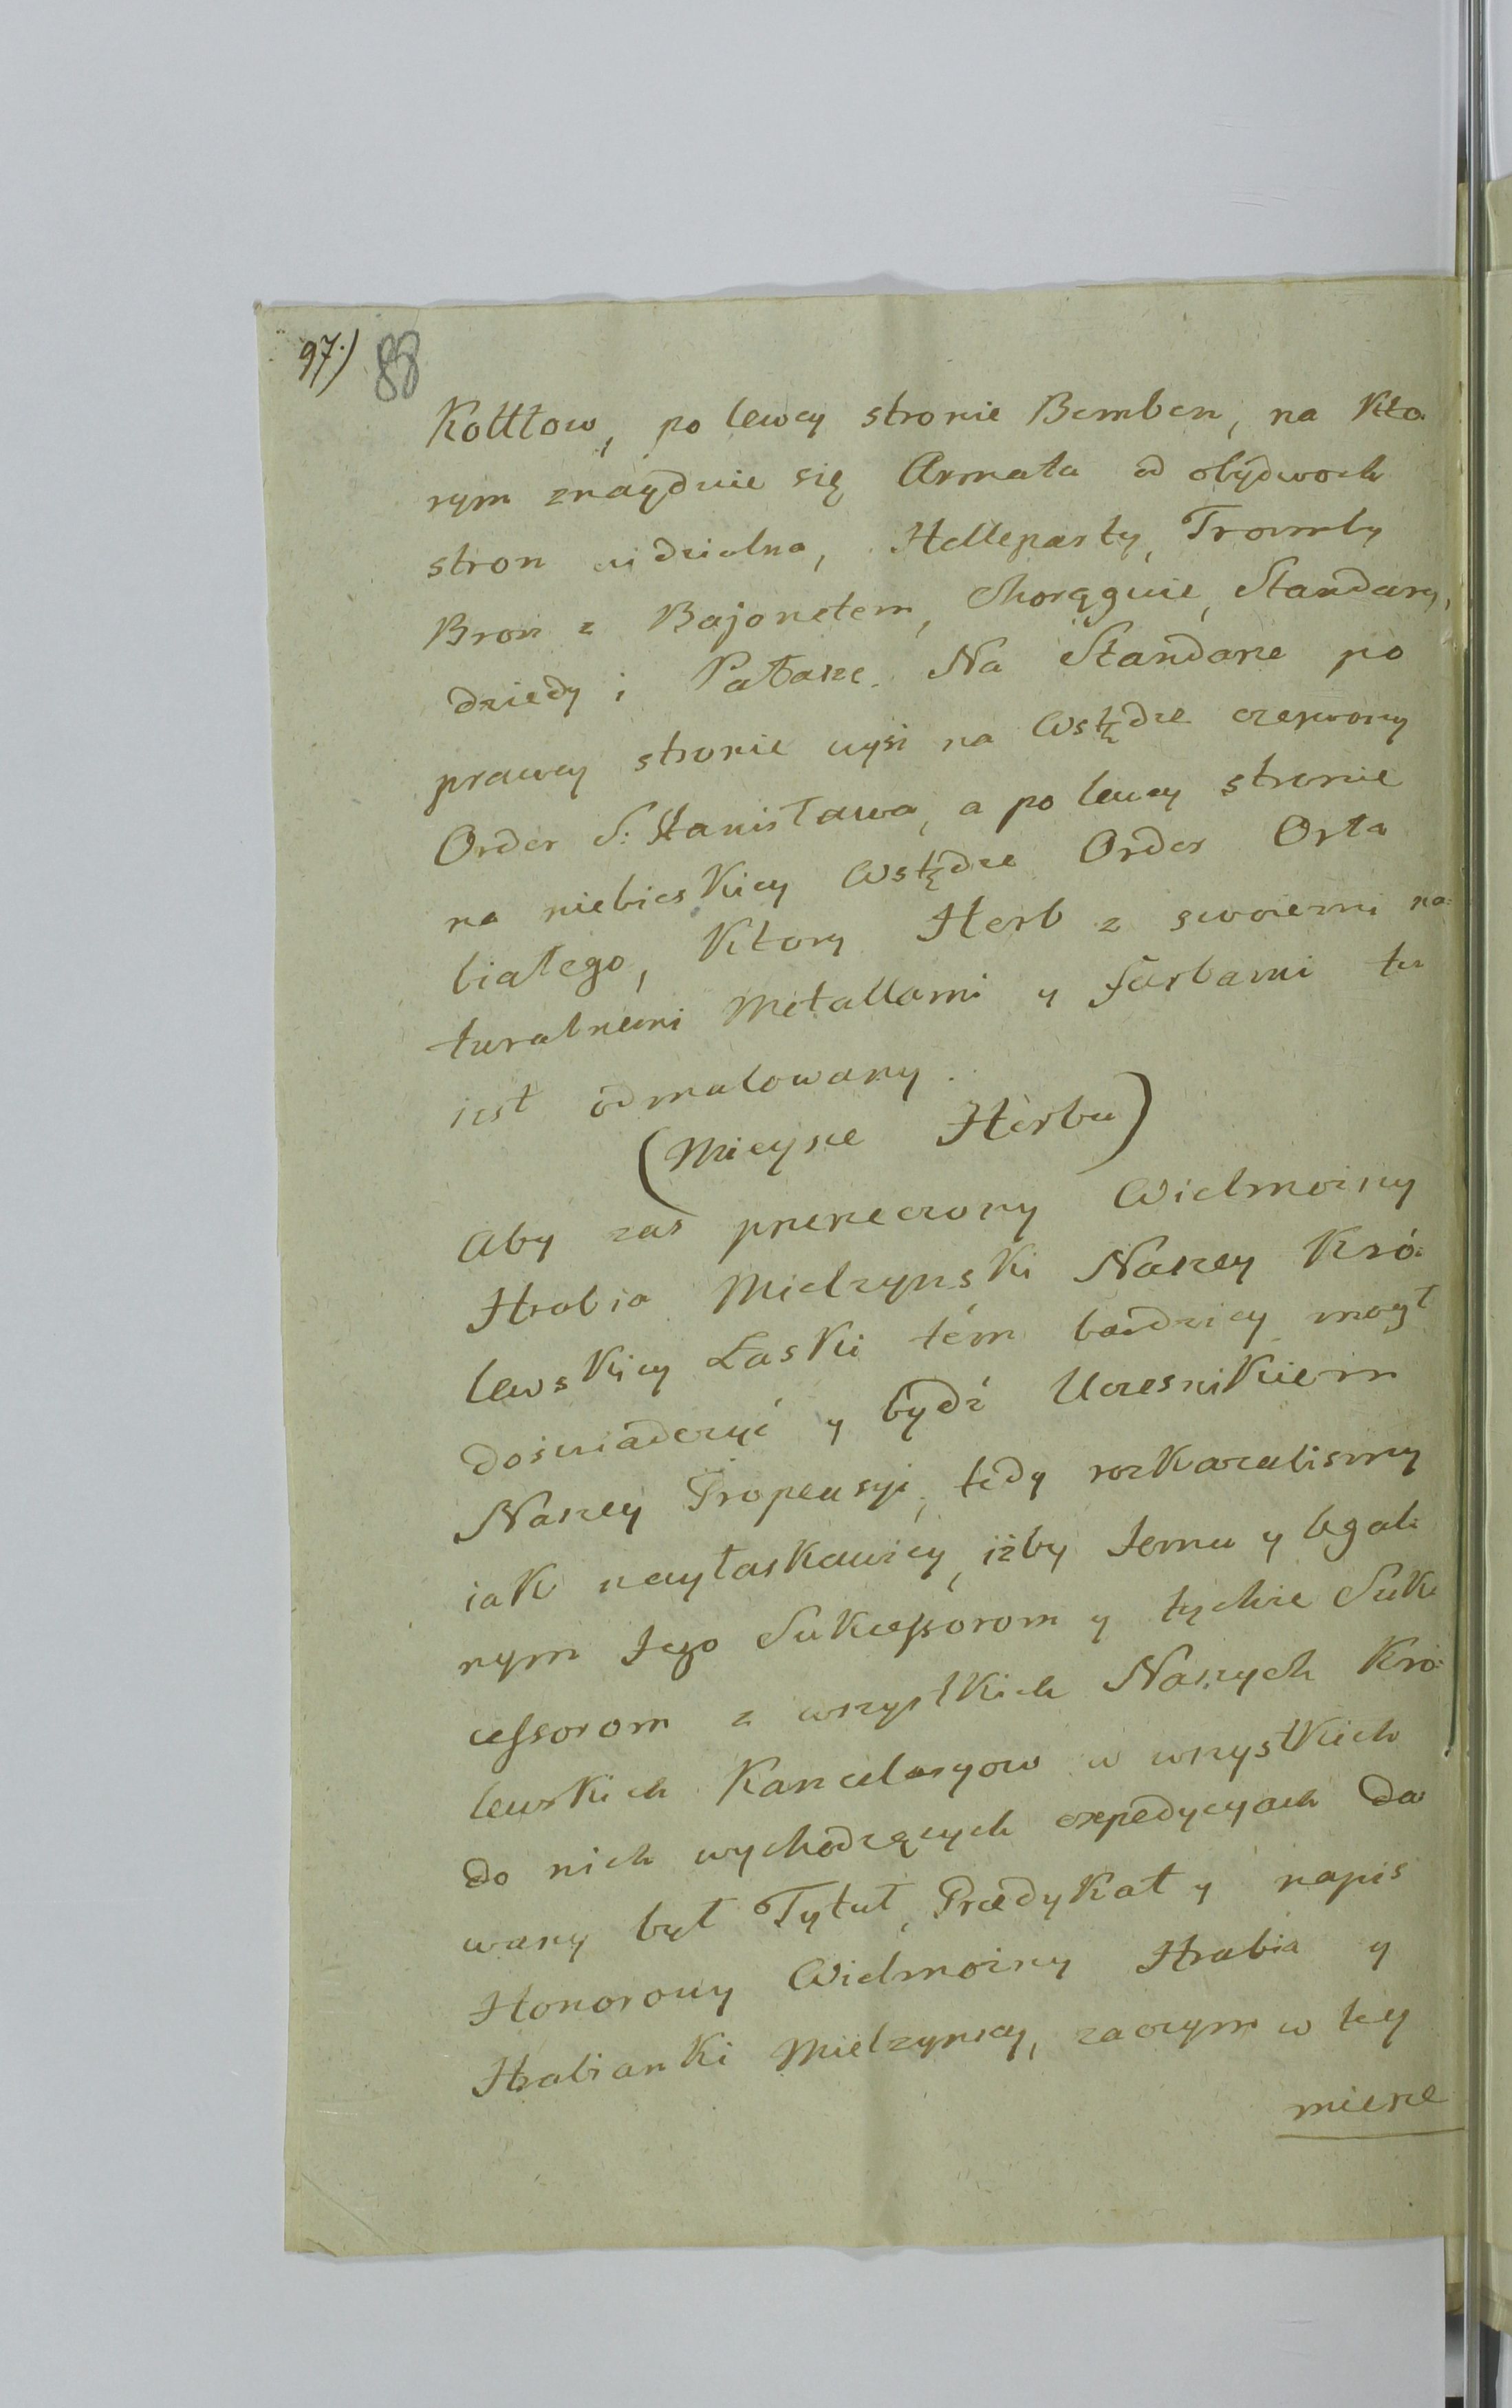 97.) 88
Kottłow, po lewey stronie Bemben, na Kto:
rym znayduie się Armata od obydwoch
stron widzialna, Helleparty, Tromby
Bron z Bajonetem, Chorągwie, Standary,
dziedy i Pałasze. Na Standarze po
prawey stronie wysi na Wstędze czerwony
Order S: Stanisława, a po lewey stronie
na niebieskiey Wstędze Order Orła
białego, Ktory Herb z swoiemi na:
turalnemi Metallami y farbami tu
iest odmalowany.
(Mieysce Herbu)
Aby zas przerzeczony Wielmożny
Hrabia Mielzynski Naszey Kró:
lewskiey Łaski tém bardziey mogł
doświadczyć y bydź Uczesnikiem
Naszey Propensyi, tedy rozkazalismy
iak nayłaskawiey, iżby Jemu y legal:
nym Jego Sukcessorom y tychże Suk:
cessorom z wszystkich Naszych Kró:
lewskich Kancelaryow w wszystkich
do nich wychodzących expedycyach da:
wany był Tytuł, Prædykat y napis
Honorowy Wielmożny Hrabia y
Hrabianki Mielzynscy, zaczym w tey
mierze